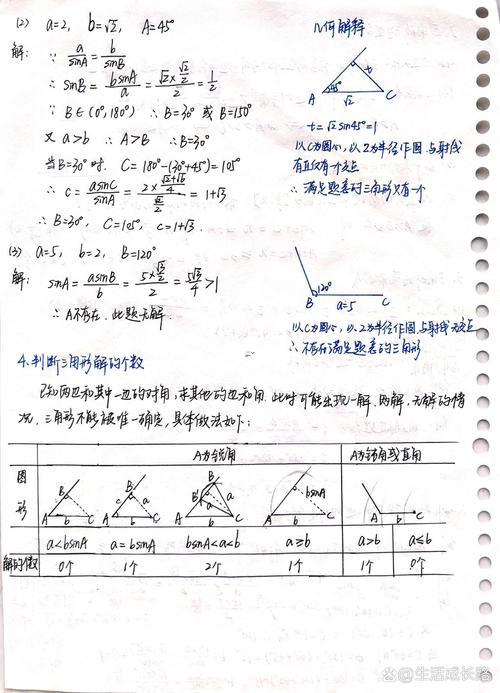 (2) a=2, b=√2, A=45°
解: ∵ a/sinA = b/sinB
∴ sinB = bsinA/a = (√2×√2/2)/2 = 1/2
∵ B∈(0°,180°) ∴ B=30° 或 B=150°
又 a>b ∴ A>B ∴ B=30°
当B=30°时, C=180°-(30°+45°)=105°
∴ c = asinC/sinA = (2×(√2+√6)/4)/(√2/2) = 1+√3
∴ B=30°, C=105°, c=1+√3.
几何解释
t
A 45° √2 C
t=√2sin45°=1
以C为圆心,以2为半径作圆与射线
有且仅有一个交点
∴ 满足题意的三角形仅有一个
(3) a=5, b=2, B=120°
解: sinA = asinB/b = (5×√3/2)/2 = 5√3/4 >1
∴ A不存在, 此题无解.
120°
B a=5 C
以C为圆心,以2为半径作圆与射线无交点
∴ 不存在满足题意的三角形
4.判断三角形解的个数
已知两边和其中一边的对角,求其他的边和角.此时可能出现一解、两解、无解的情
况,三角形不能被唯一确定,具体做法如下:
A为锐角 A为钝角或直角
图形
B a A b C
B c a A b C
B B' a a A b C
bsinA A b C
A b C
a<bsinA a=bsinA bsinA<a<b a≥b a>b a≤b
解的个数 0个 1个 2个 1个 1个 0个
@生活成长路